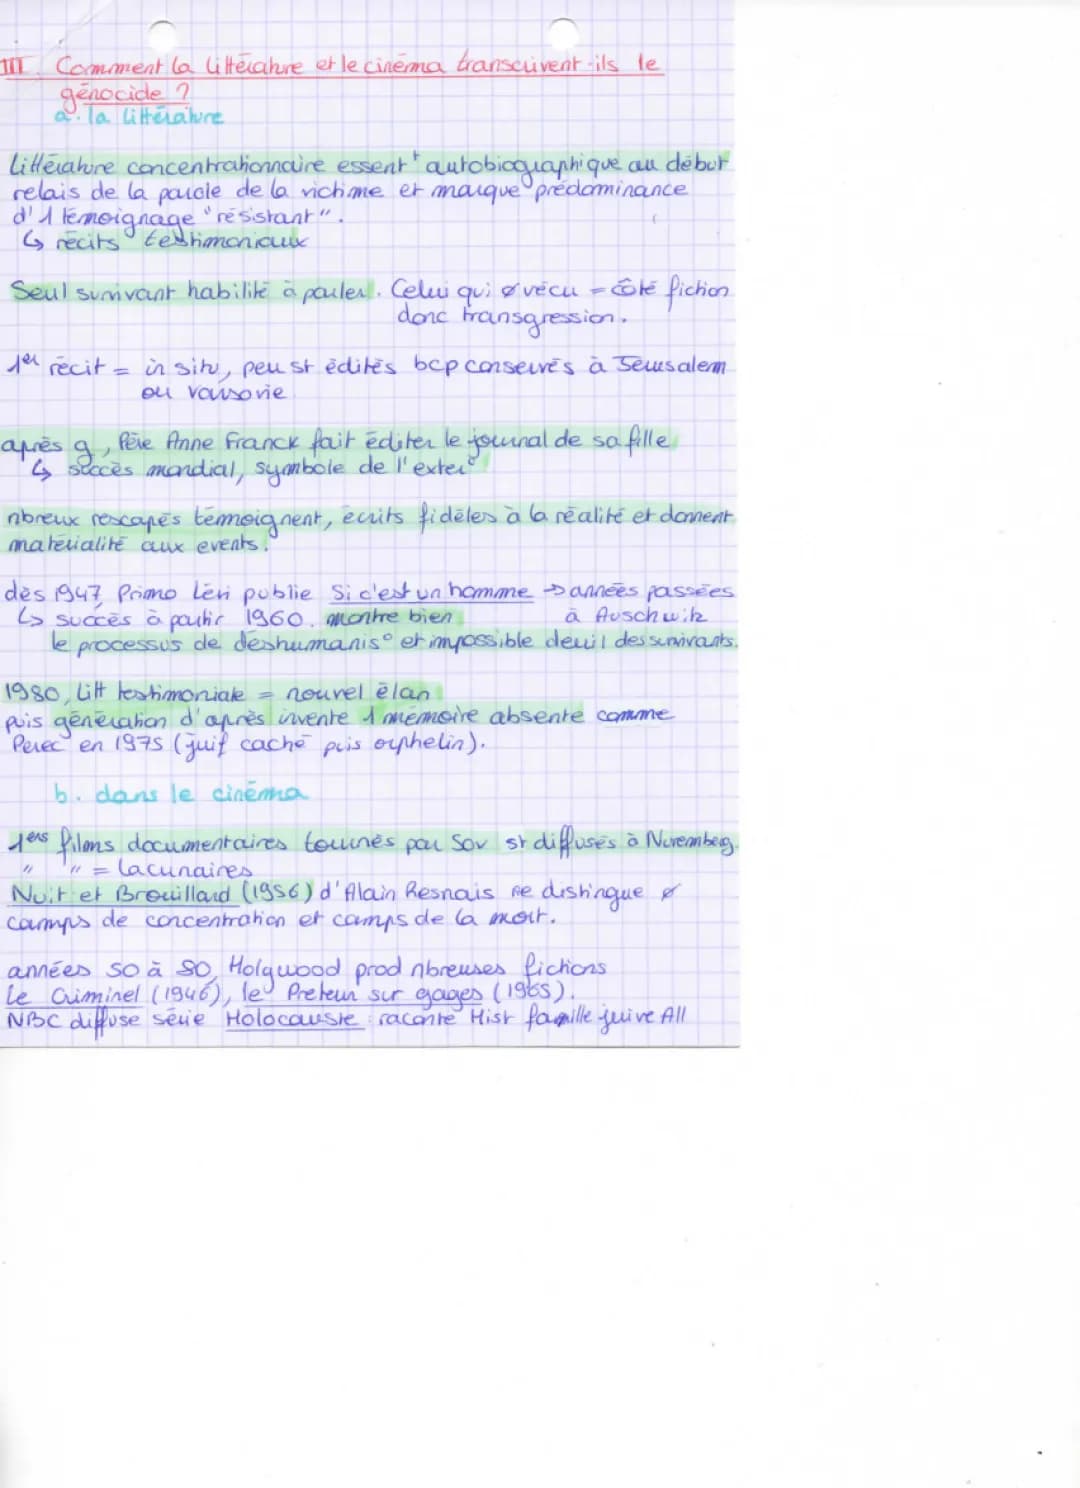 III. Comment la littérature et le cinéma transcrivent-ils le
génocide ?
a. la littérature
Littérature concentrationnaire essentᵗ autobiographique au début
relais de la parole de la victime et marque prédominance
d'1 témoignage "résistant".
↳ récits testimoniaux
Seul survivant habilité à parler. Celui qui ø vécu = côté fiction
donc transgression.
1er récit = in situ, peu st édités bcp conservés à Jerusalem
ou varsovie
après g, Père Anne Franck fait éditer le journal de sa fille
↳ succès mondial, symbole de l'exter°
nbreux rescapés témoignent, écrits fidèles à la réalité et donnent
matérialité aux events.
dès 1947, Primo Lévi publie Si c'est un homme → années passées
↳ succès à partir 1960. montre bien à Auschwitz
le processus de déshumanis° et impossible deuil des survivants.
1980, Litt testimoniale = nouvel élan
puis génération d'après invente 1 mémoire absente comme
Perec en 1975 (juif caché puis orphelin).
b. dans le cinéma
1ers films documentaires tournés par Sov st diffusés à Nuremberg.
" " = lacunaires
Nuit et Brouillard (1956) d'Alain Resnais ne distingue ø
camps de concentration et camps de la mort.
années 50 à 80, Holywood prod nbreuses fictions
Le Criminel (1946), le Preteur sur gages (1965).
NBC diffuse série Holocauste : raconte Hist famille juive All